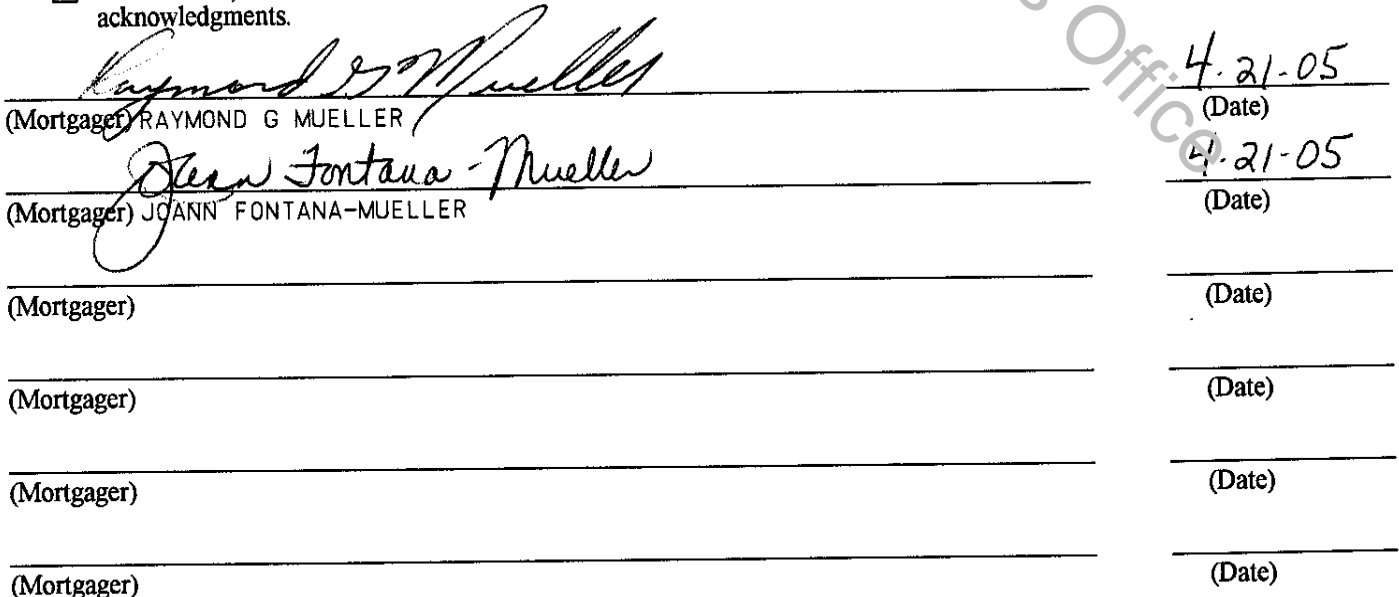 acknowledgments.
Raymond G Mueller 4.21-05
(Mortgager) RAYMOND G MUELLER (Date)
Joann Fontana-Mueller 4.21-05
(Mortgager) JOANN FONTANA-MUELLER (Date)
(Mortgager) (Date)
(Mortgager) (Date)
(Mortgager) (Date)
(Mortgager) (Date)
s Office